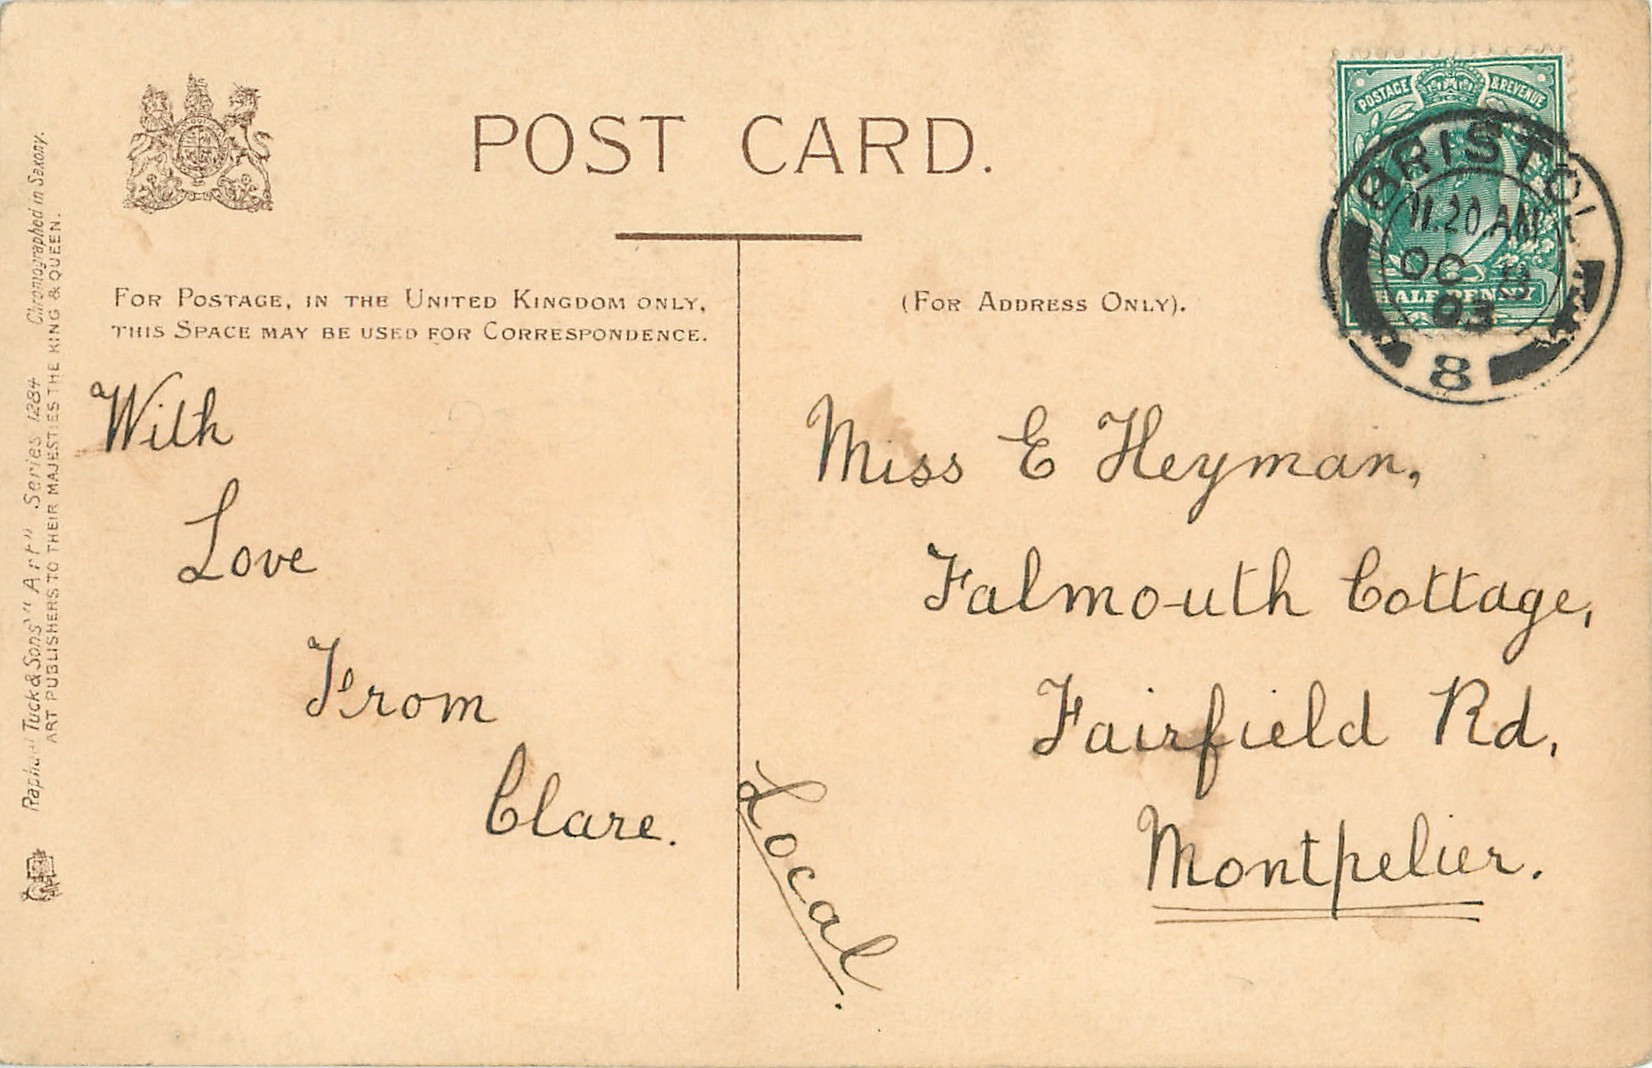 POST CARD.
FOR POSTAGE, IN THE UNITED KINGDOM ONLY,
THIS SPACE MAY BE USED FOR CORRESPONDENCE.
(FOR ADDRESS ONLY).
POSTAGE & REVENUE
HALFPENNY
BRISTOL
11.20.AM
OC
03
8
With
Love
From
Clare.
Local.
Miss E Heyman,
Falmouth Cottage,
Fairfield Rd,
Montpelier.
Raphael Tuck & Sons' "Art" Series 1284 Chromographed in Saxony.
ART PUBLISHERS TO THEIR MAJESTIES THE KING & QUEEN.